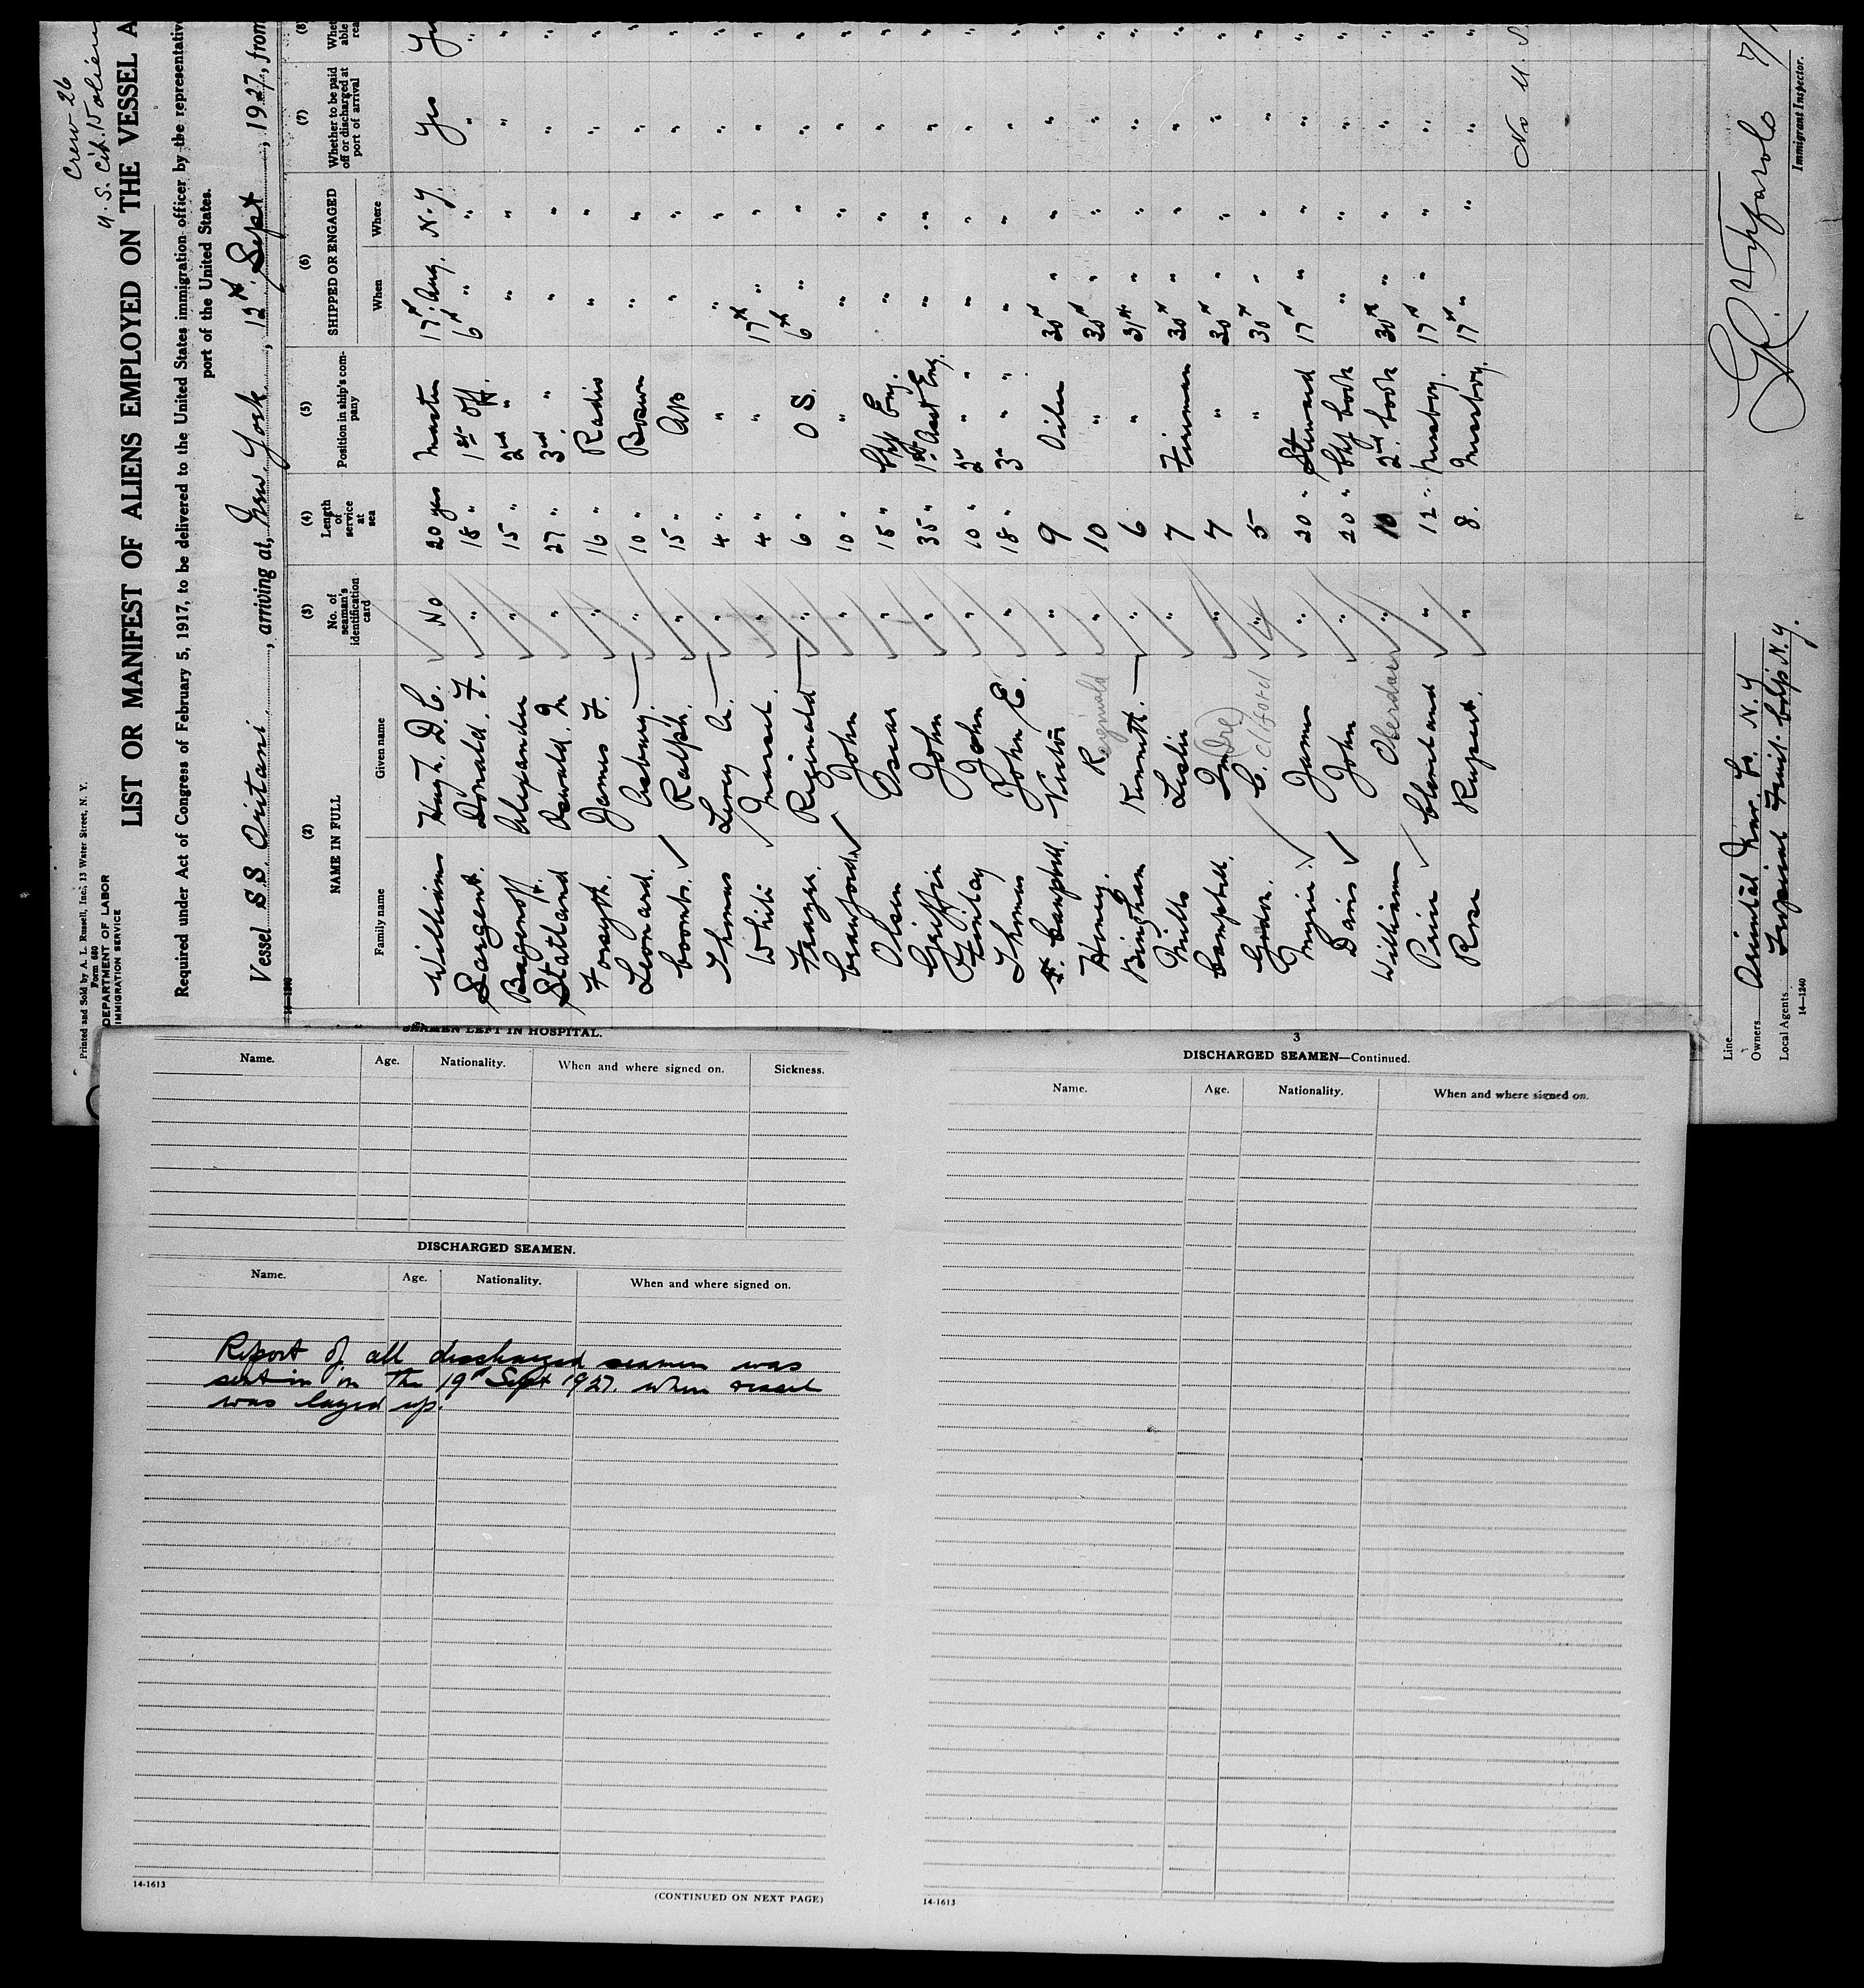 Crew 26
U. S. Cit. 15 aliens
Printed and Sold by A. L. Russell, Inc., 13 Water Street, N. Y.
Form 680
DEPARTMENT OF LABOR
IMMIGRATION SERVICE
LIST OR MANIFEST OF ALIENS EMPLOYED ON THE VESSEL A
Required under Act of Congress of February 5, 1917, to be delivered to the United States immigration officer by the representativ
port of the United States.
Vessel S.S. Oritani, arriving at, New York, 12th Sept, 1927, from
(2) (3) (4) (5) (6) (7) (8)
NAME IN FULL No. of seaman's identification card Length of service at sea Position in ship's company SHIPPED OR ENGAGED Whether to be paid off or discharged at port of arrival
Family name Given name When Where
Williams Hugh. D. C. No 20 yrs Master 17th Aug. N.Y. Yes Yes
Sargent. Donald. F. " 18 " 1st Off. 6th " " " "
Alexander " 15 " 2nd " " " " "
Statland Oswald. " 27 " 3rd " " " " "
Forsyth. James F. " 16 " Radio " " " "
Leonard. Asbury. " 10 " Bosun " " " "
Coombs. Ralph. " 15 " AB " " " "
Thomas Leroy A. " 4 " " " " " "
White " 4 " " 17th " " " "
Frazer. Reginald " 6 " O S. 6th " " " "
Crawford. John " 10 " " " " " "
Olsen Oscar " 15 " Chf Eng. " " " "
Griffin John " 35 " 1st Asst Eng. " " " "
Finlay John " 10 " 2nd " " " " " "
Thomas John E. " 18 " 3rd " " " " " "
Campbell. " 9 Oiler 30th " " " "
Henry. R. Reginald " 10 " 30th " " " "
Bingham Kenneth. " 6 " 31st " " " "
Mills Leslie " 7 Fireman 30th " " " "
Campbell. " 7 " 30th " " " "
Gordon. C. Clifford " 5 " 30th " " " "
James " 20 " Steward 17th " " " "
Davis John " 20 " Chf Cook " " " "
Williams " 10 2nd Cook 30th " " " "
Cleveland " 12 " Messboy. 17th " " " "
Rose Rupert. " 8. Messboy. 17th " " " "
No U. S.
Line
Owners Oriental Nav. Co. N. Y
Local Agents
14—1240
Immigrant Inspector.
SEAMEN LEFT IN HOSPITAL.
Name. Age. Nationality. When and where signed on. Sickness.
DISCHARGED SEAMEN.
Name. Age. Nationality. When and where signed on.
Report of all discharged seamen was
sent in on the 19th Sept 1927. when vessel
was layed up.
14-1613
(CONTINUED ON NEXT PAGE)
3
DISCHARGED SEAMEN—Continued.
Name. Age. Nationality. When and where signed on.
14-1613